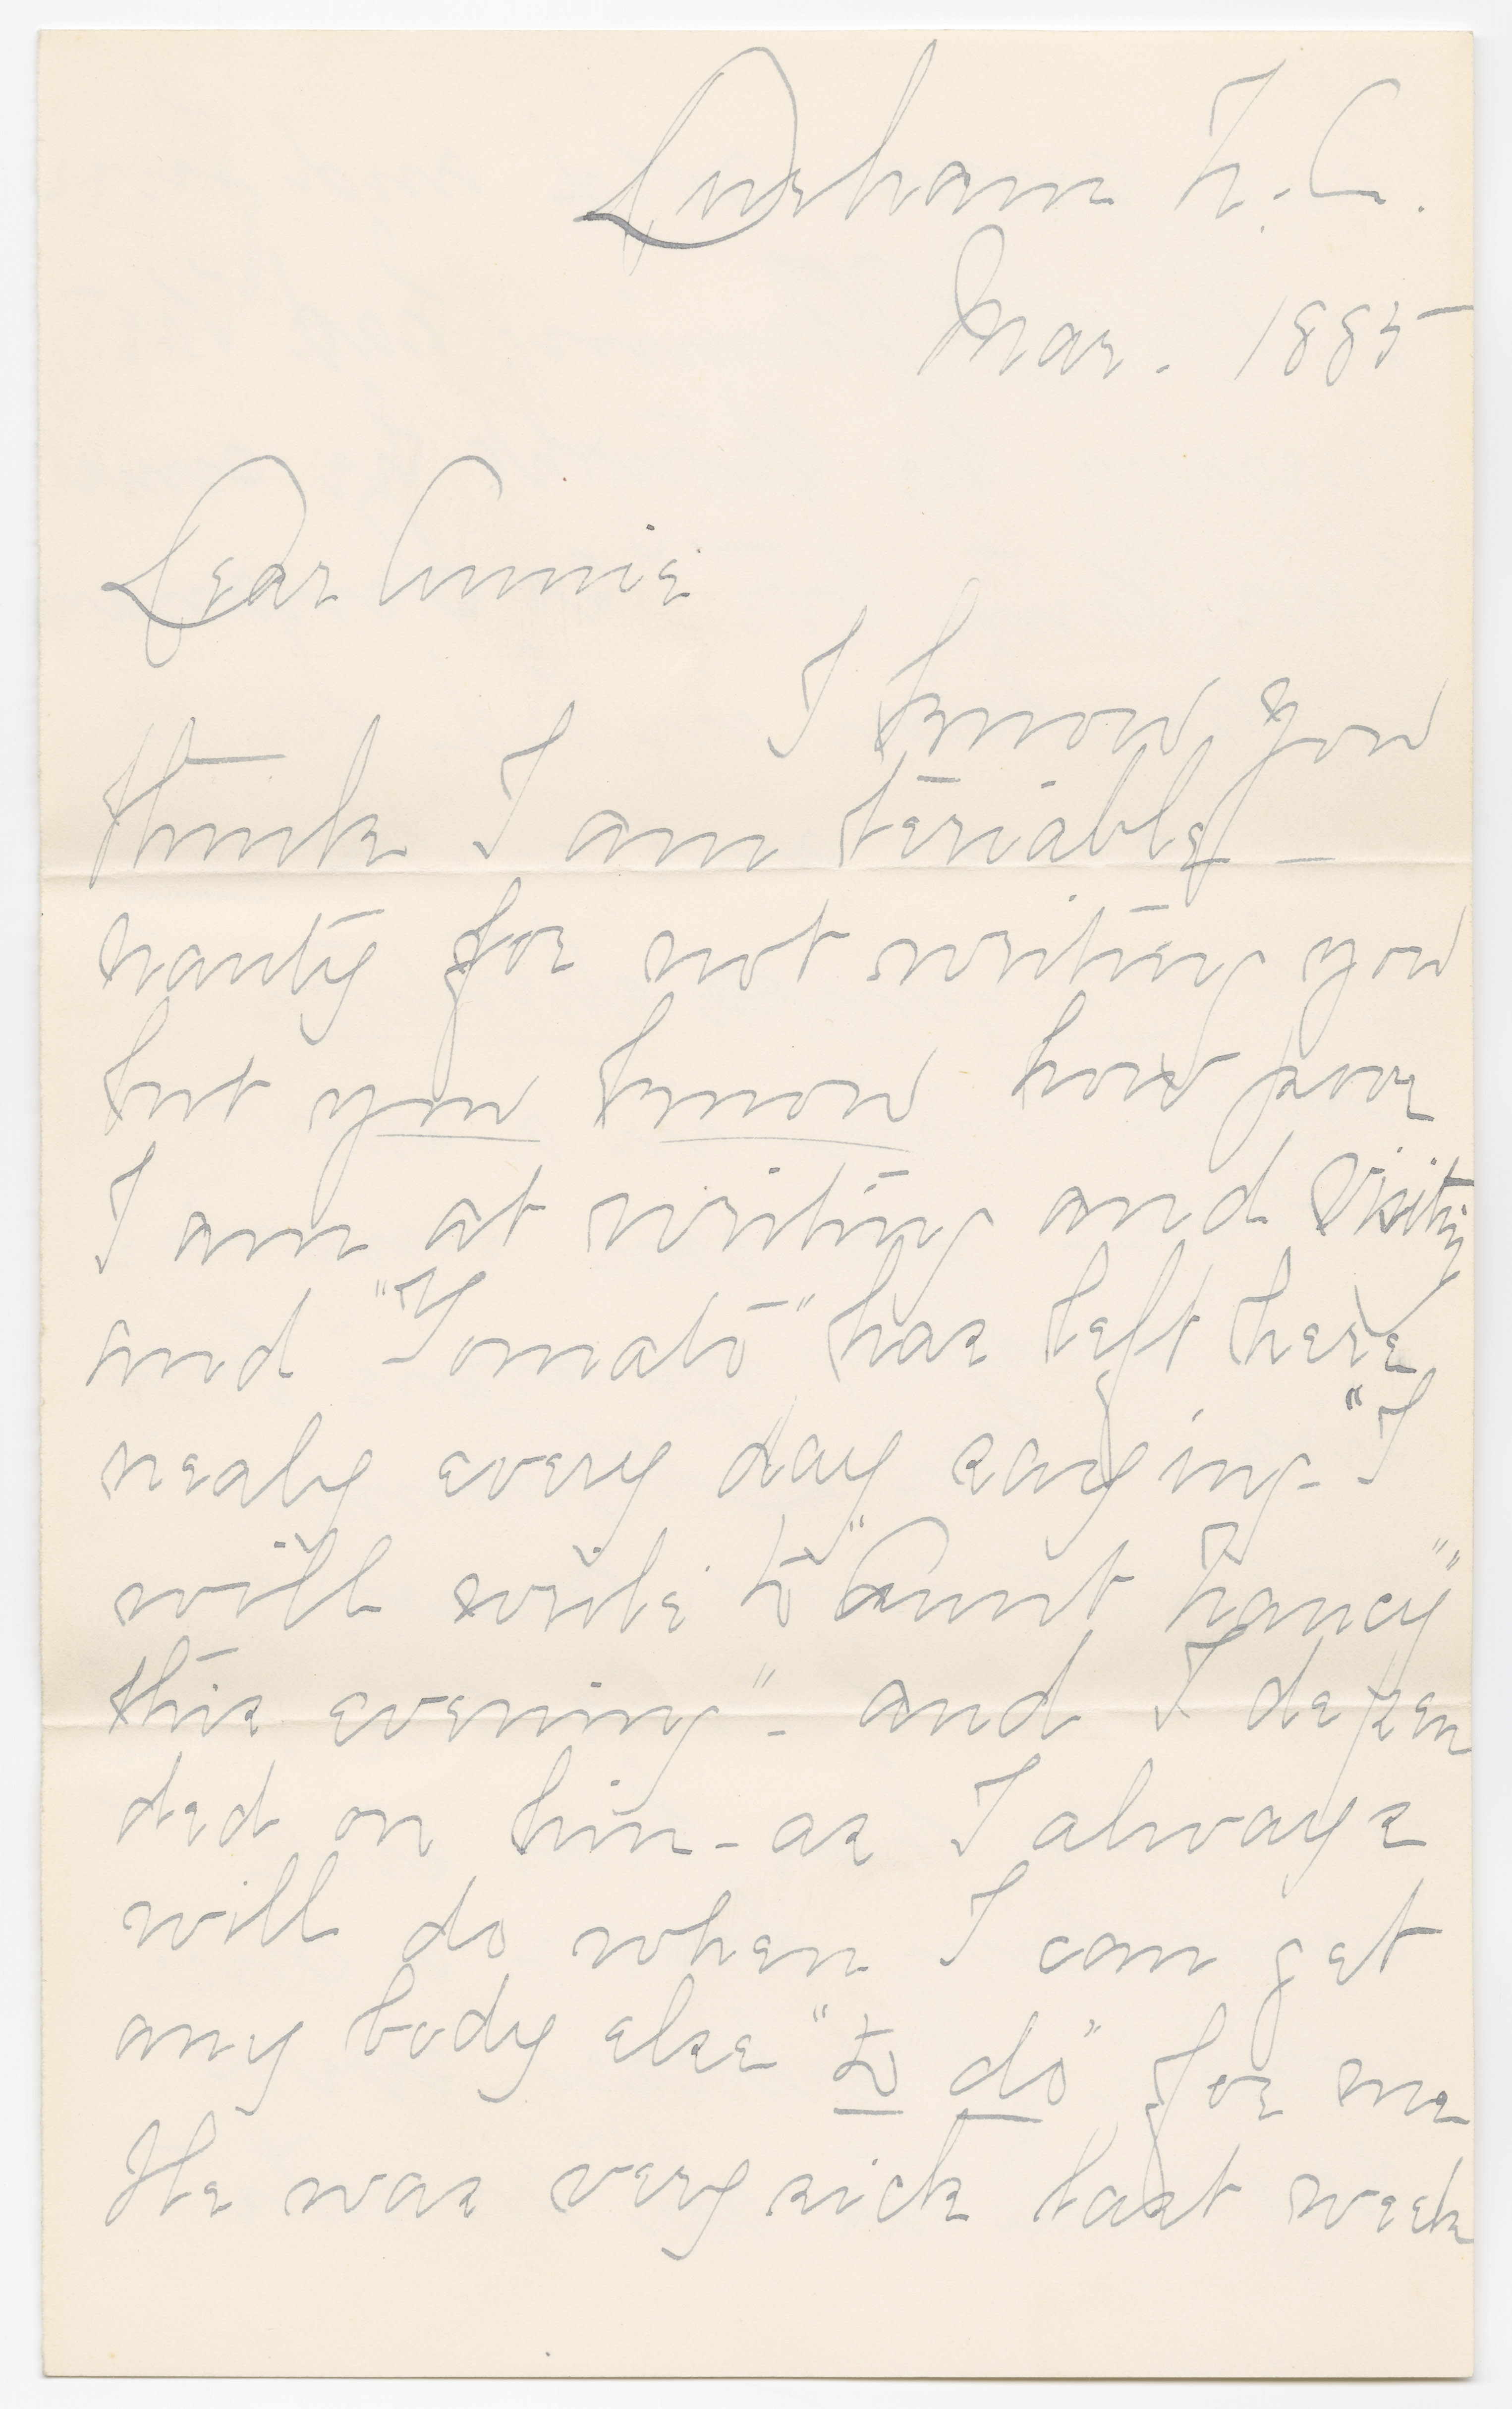 Durham N.C.
Mar. 1885
Dear Annie
I know you
think I am teriable -
nauty for not writing you
but you know how poor
I am at writing and visiting
and "Tomato" has left here
nealy every day saying - "I
will write to "Aunt Nancy"
this evening" - and I depen
ded on him - as I always
will do when I can get
any body else "to do" for me
He was very sick last week